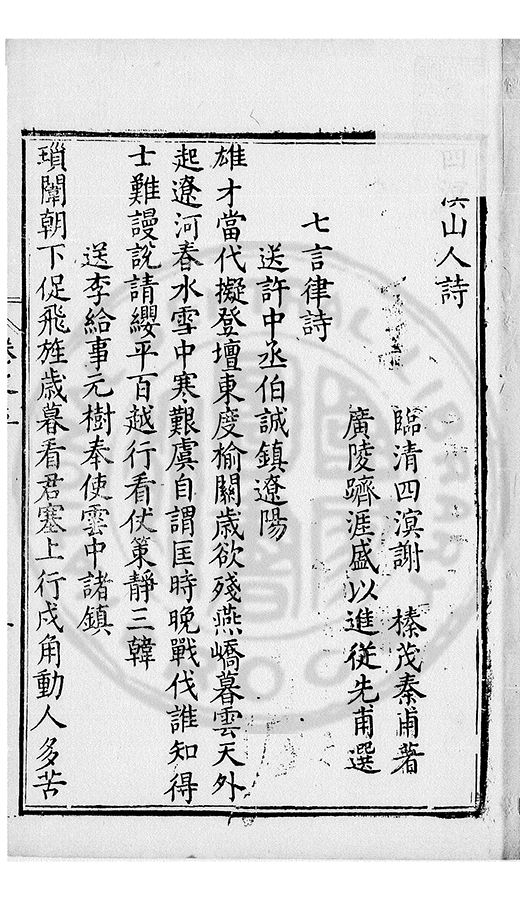 四溟山人詩
臨清四溟謝　榛茂秦甫著
廣陵躋涯盛以進從先甫選
七言律詩
送許中丞伯誠鎮遼陽
雄才當代擬登壇東度榆關歲欲殘燕嶠暮雲天外
起遼河春水雪中寒艱虞自謂匡時晚戰伐誰知得
士難謾說請纓平百越行看伏策靜三韓
送李給事元樹奉使雲中諸鎮
瑣闈朝下促飛旌歲暮看君塞上行戍角動人多苦